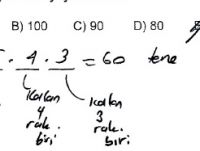 B) 100 C) 90 D) 80
. 4 . 3 = 60 tane
kalan kalan
4 3
rak. rak.
biri biri